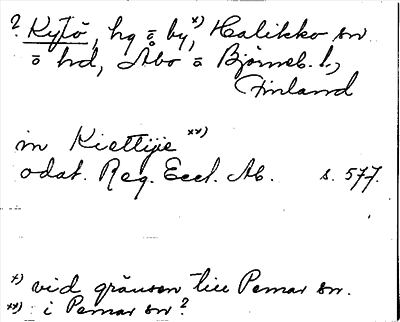 ? Kytö, hg o by, x) Halikko sn
o hd, Åbo o Björneb. l.,
Finland
in Kiettije xx)
odat. Reg. Eccl. Ab. s. 577.
x) vid gränsen till Pemar sn.
xx) i Pemar sn?